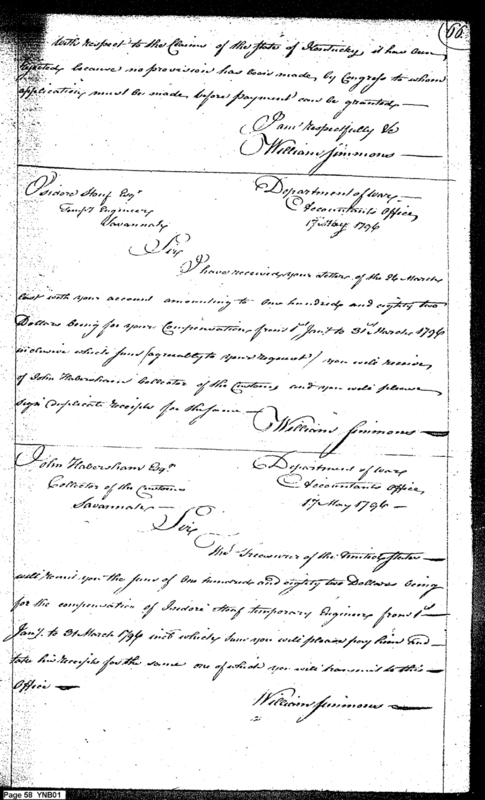 66
With respect to the Claims of the State of Kentucky it has been
rejected, because no provision has been made by Congress to whom
application must be made before payment can be granted —
I am respectfully &c
William Simmons —
Isidore Stouf Esqr
Tempy Engineer
Savannah
Department of War
Accountants Office
17 May 1796
Sir
I have received your Letter of the 26 March
last with your account amounting to one hundred and eighty two
Dollars being for your Compensation from 1st Jany to 31st March 1796
inclusive which sum (agreeably to your request) you will receive
of John Habersham Collector of the Customs and you will please
sign duplicate receipts for the same —
William Simmons —
John Habersham Esqr
Collector of the Customs
Savannah —
Department of War
Accountants Office
17 May 1796 —
Sir
The Treasurer of the United States —
will remit you the sum of One hundred and eighty two Dollars being
for the compensation of Isidore Stouf temporary Engineer from 1st
Jany. to 31 March 1796 incl which sum you will please pay him and
take his receipts for the same one of which you will transmit to this
Office —
William Simmons —
Page 58 YNB01